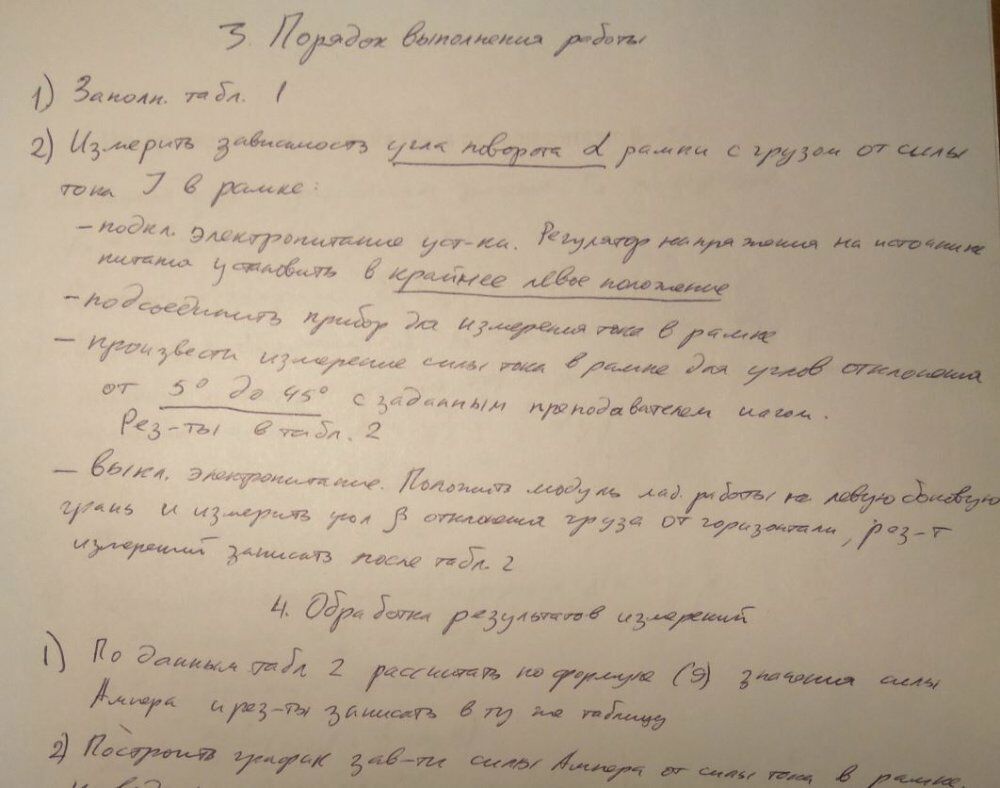 3. Порядок выполнения работы
1) Заполн. табл. 1
2) Измерить зависимость угла поворота α рамки с грузом от силы
тока I в рамке:
– подкл. электропитание уст-ки. Регулятор напряжения на источнике
питания установить в крайнее левое положение
– подсоединить прибор для измерения тока в рамке
– произвести измерение силы тока в рамке для углов отклонения
от 5° до 45° с заданным преподавателем шагом.
Рез-ты в табл. 2
– Выкл. электропитание. Положить модуль лаб. работы на левую боковую
грань и измерить угол β отклонения груза от горизонтали, рез-т
измерений записать после табл. 2
4. Обработка результатов измерений
1) По данным табл 2 рассчитать по формуле (9) значения силы
Ампера и рез-ты записать в ту же таблицу
2) Построить график зав-ти силы Ампера от силы тока в рамке.